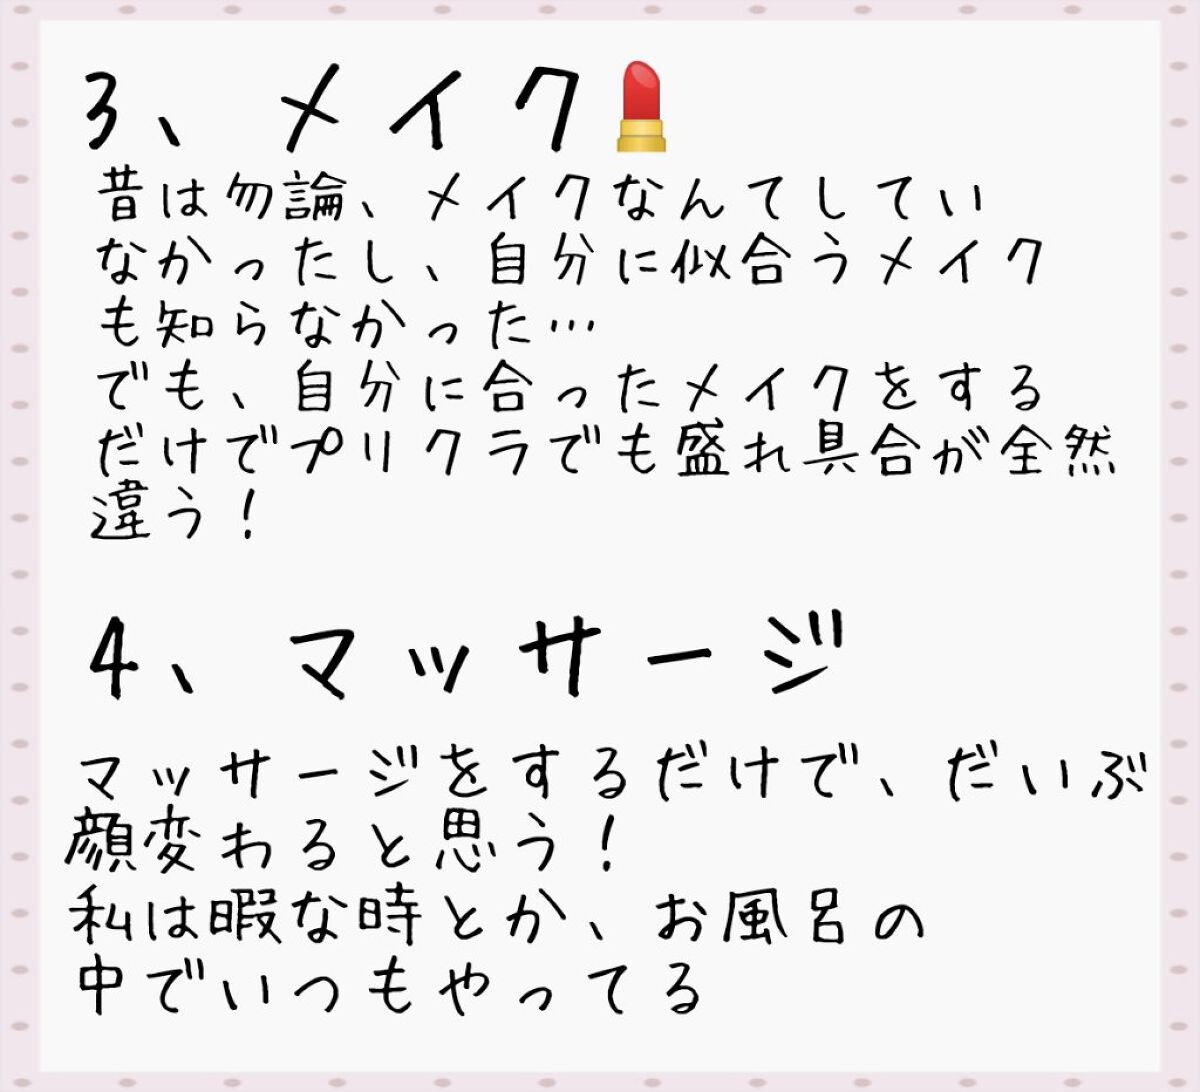 3、メイク💄
昔は勿論、メイクなんてしてい
なかったし、自分に似合うメイク
も知らなかった…
でも、自分に合ったメイクをする
だけでプリクラでも盛れ具合が全然
違う！
4、マッサージ
マッサージをするだけで、だいぶ
顔変わると思う！
私は暇な時とか、お風呂の
中でいつもやってる